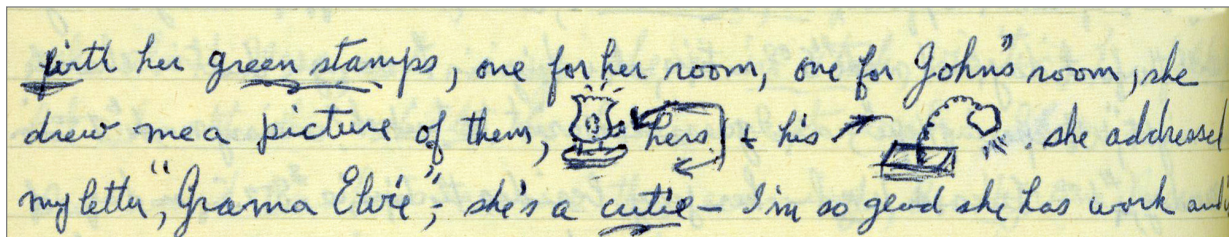 with her green stamps, one for her room, one for John's room, she
drew me a picture of them, hers & his . she addressed
my letter, "Grama Elvie", she's a cutie – I'm so glad she has work and